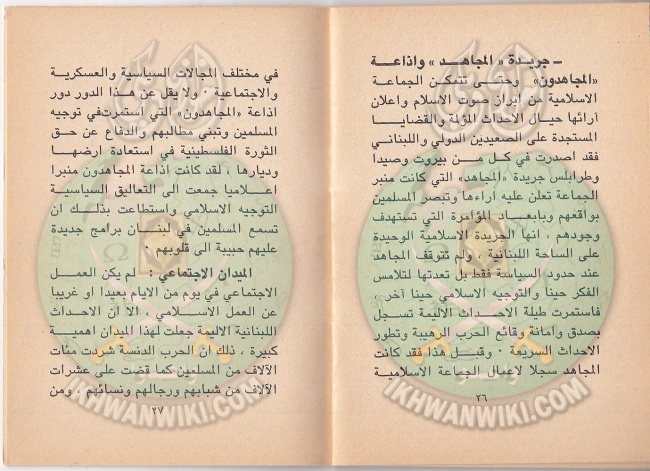 ـ جريدة « المجاهد » واذاعة
«المجاهدون» وحتى تتمكن الجماعة
الاسلامية من ابراز صوت الاسلام واعلان
آرائها حيال الاحداث المؤلمة والقضايا
المستجدة على الصعيدين الدولي واللبناني
فقد اصدرت في كل من بيروت وصيدا
وطرابلس جريدة «المجاهد» التي كانت منبر
الجماعة تعلن عليه آراءها وتبصر المسلمين
بواقعهم وبابعاد المؤامرة التي تستهدف
وجودهم ، انها الجريدة الاسلامية الوحيدة
على الساحة اللبنانية ، ولم تتوقف المجاهد
عند حدود السياسة فقط بل تعدتها لتلامس
الفكر حينا والتوجيه الاسلامي حينا آخر
فاستمرت طيلة الاحداث الاليمة تسجل
بصدق وامانة وقائع الحرب الرهيبة وتطور
الاحداث السريعة · وقبل هذا فقد كانت
المجاهد سجلا لاعمال الجماعة الاسلامية
٢٦
في مختلف المجالات السياسية والعسكرية
والاجتماعية · ولا يقل عن هذا الدور دور
اذاعة «المجاهدون» التي استمرت في توجيه
المسلمين وتبني مطالبهم والدفاع عن حق
الثورة الفلسطينية في استعادة ارضها
وديارها ، لقد كانت اذاعة المجاهدون منبرا
اعلاميا جمعت الى التعاليق السياسية
التوجيه الاسلامي واستطاعت بذلك ان
تسمع المسلمين في لبنان برامج جديدة
عليهم حبيبة الى قلوبهم ·
الميدان الاجتماعي : لم يكن العمل
الاجتماعي في يوم من الايام بعيدا او غريبا
عن العمل الاسلامي ، الا ان الاحداث
اللبنانية الاليمة جعلت لهذا الميدان اهمية
كبيرة ، ذلك ان الحرب الدنسة شردت مئات
الآلاف من المسلمين كما قضت على عشرات
الآلاف من شبابهم ورجالهم ونسائهم ، ومن
٢٧
IKHWANWIKI.COM
IKHWANWIKI.COM